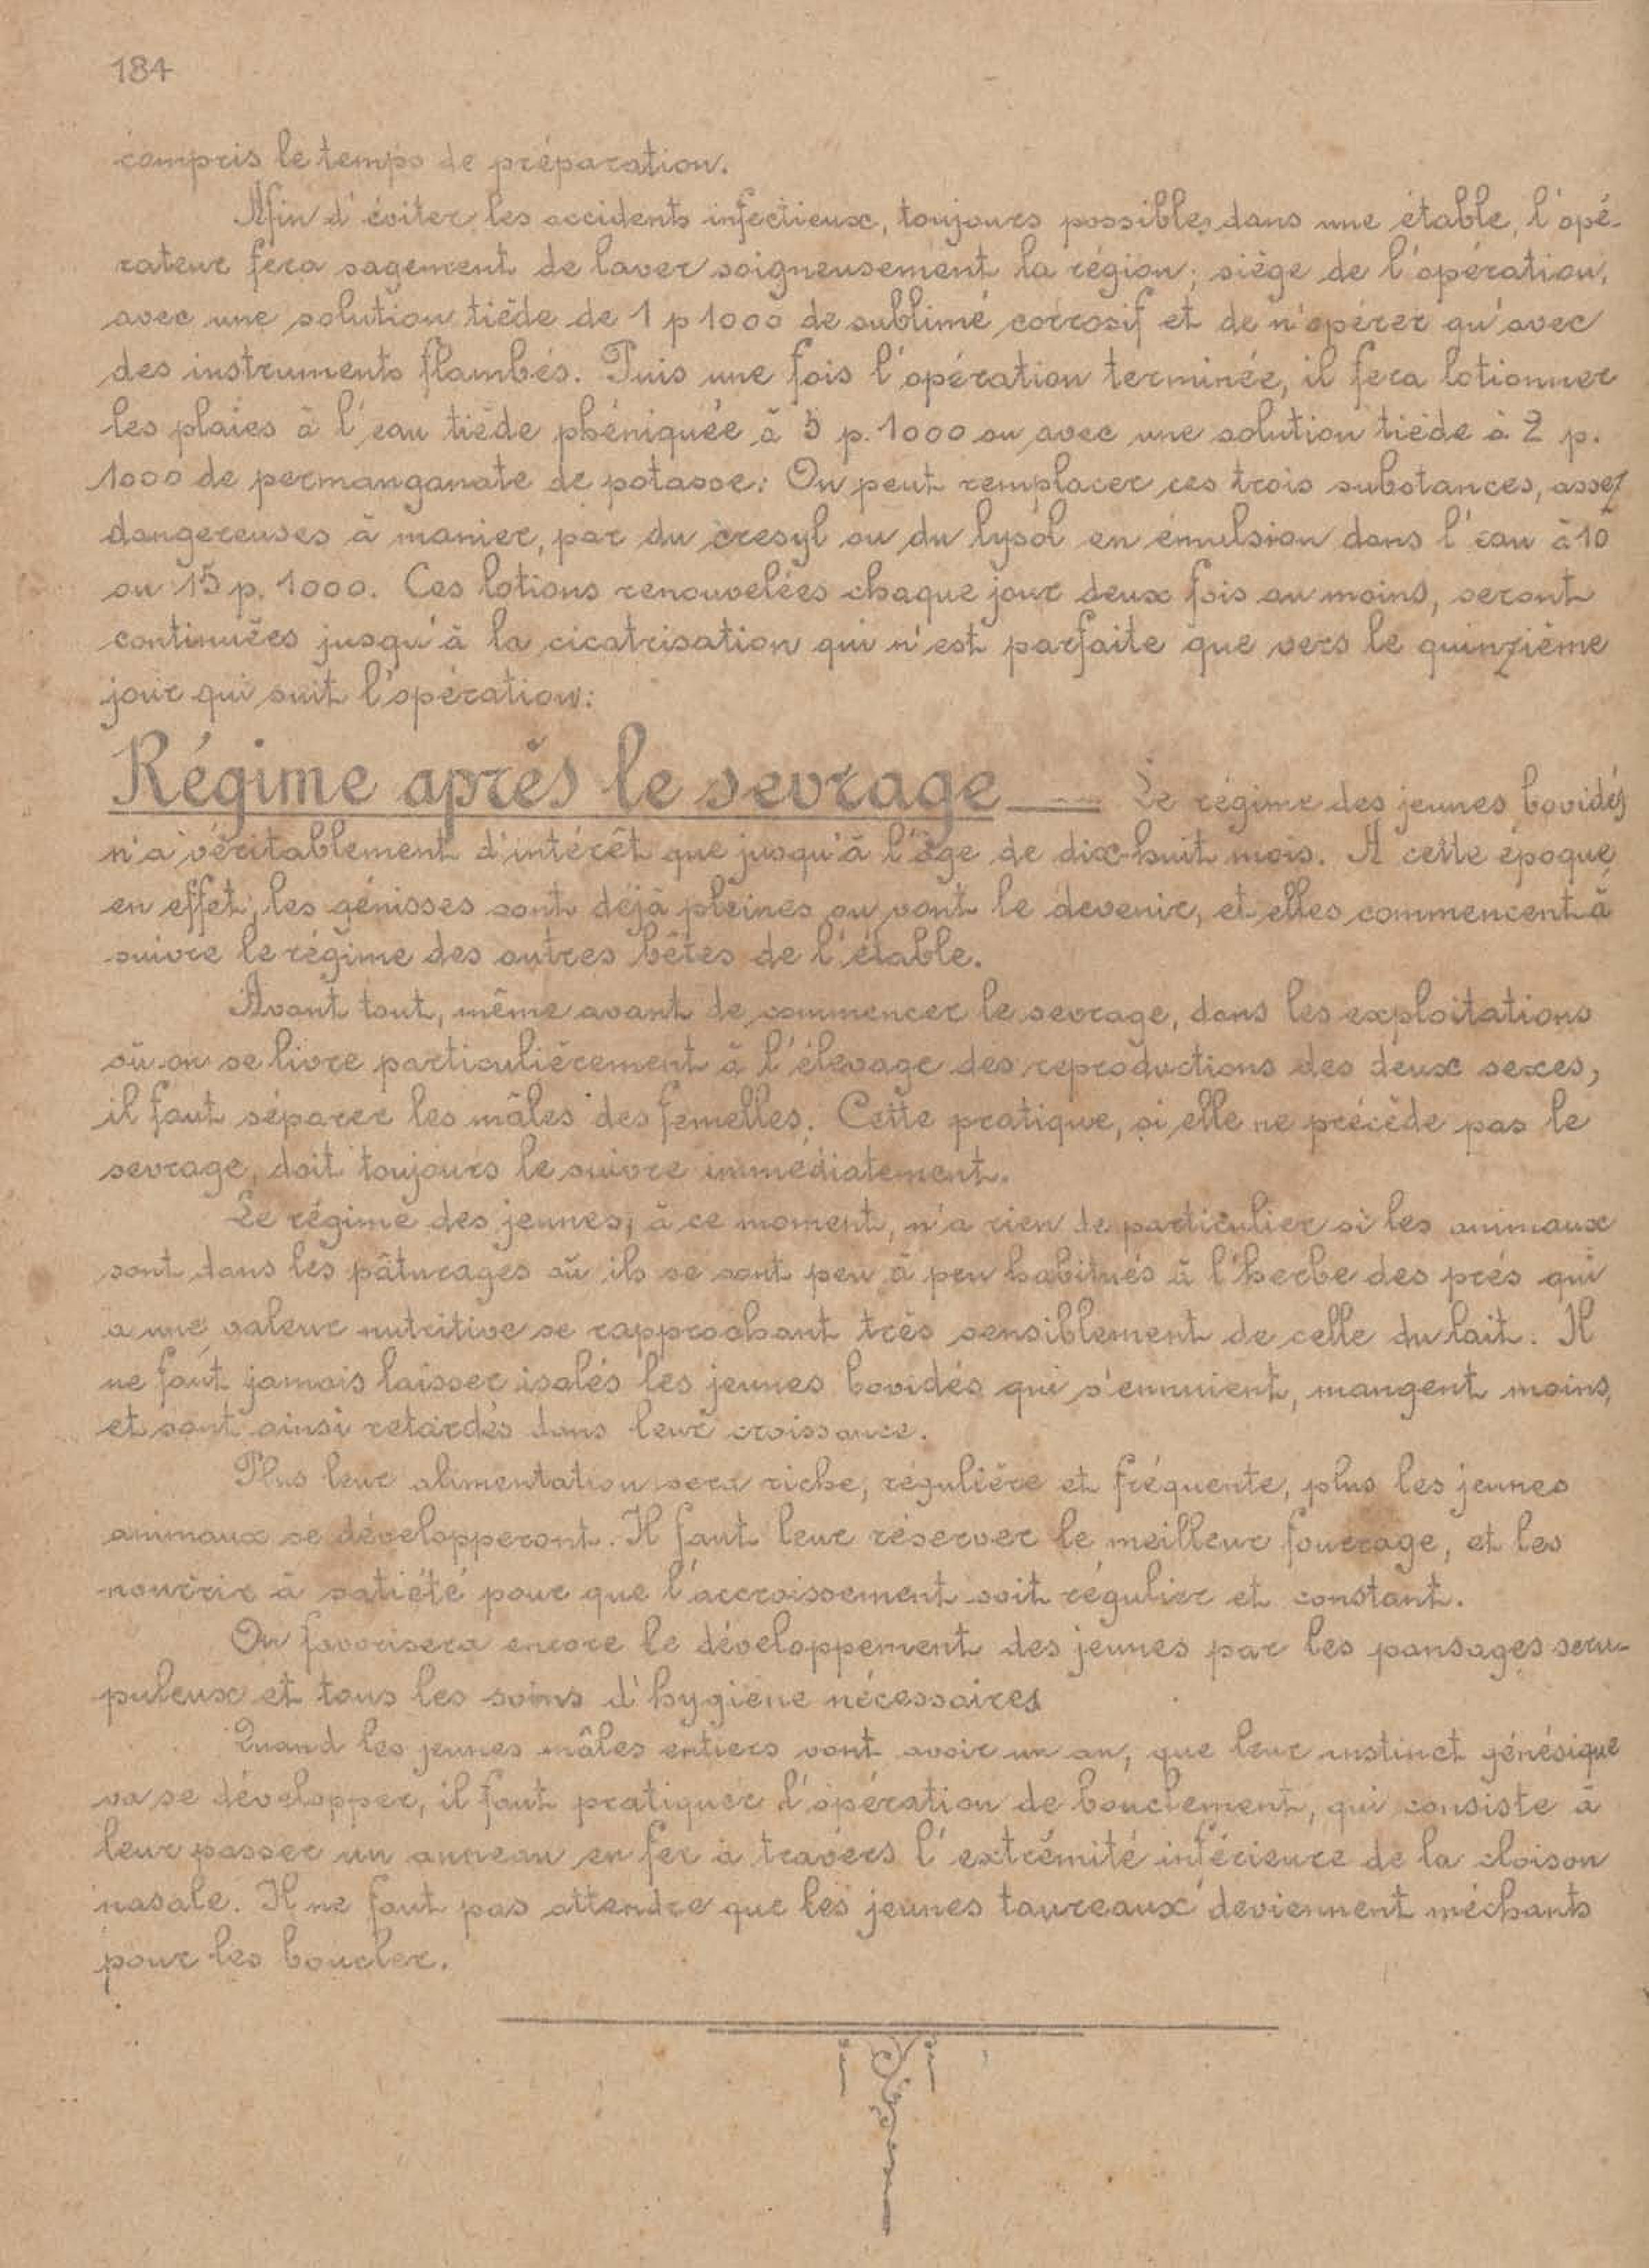 184
compris le temps de préparation.
Afin d'éviter les accidents infectieux, toujours possibles dans une étable, l'opé-
rateur fera sagement de laver soigneusement la région, siège de l'opération,
avec une solution tiède de 1 p 1000 de sublimé corrosif et de n'opérer qu'avec
des instruments flambés. Puis une fois l'opération terminée, il fera lotionner
les plaies à l'eau tiède phéniquée à 5 p. 1000 ou avec une solution tiède à 2 p.
1000 de permanganate de potasse. On peut remplacer ces trois substances, assez
dangereuses à manier, par du cresyl ou du lysol en émulsion dans l'eau à 10
ou 15 p. 1000. Ces lotions renouvelées chaque jour deux fois au moins, seront
continuées jusqu'à la cicatrisation qui n'est parfaite que vers le quinzième
jour qui suit l'opération.
Régime après le sevrage — Le régime des jeunes bovidés
n'a véritablement d'intérêt que jusqu'à l'âge de dix-huit mois. A cette époque,
en effet, les génisses sont déjà pleines ou vont le devenir, et elles commencent à
suivre le régime des autres bêtes de l'étable.
Avant tout, même avant de commencer le sevrage, dans les exploitations
où on se livre particulièrement à l'élevage des reproductions des deux sexes,
il faut séparer les mâles des femelles. Cette pratique, si elle ne précède pas le
sevrage, doit toujours le suivre immédiatement.
Le régime des jeunes, à ce moment, n'a rien de particulier si les animaux
sont dans les pâturages où ils se sont peu à peu habitués à l'herbe des prés qui
a une valeur nutritive se rapprochant très sensiblement de celle du lait. Il
ne faut jamais laisser isolés les jeunes bovidés qui s'ennuient, mangent moins,
et sont ainsi retardés dans leur croissance.
Plus leur alimentation sera riche, régulière et fréquente, plus les jeunes
animaux se développeront. Il faut leur réserver le meilleur fourrage, et les
nourrir à satiété pour que l'accroissement soit régulier et constant.
On favorisera encore le développement des jeunes par les pansages scru-
puleux et tous les soins d'hygiène nécessaires
Quand les jeunes mâles entiers vont avoir un an, que leur instinct génésique
va se développer, il faut pratiquer l'opération de bouclement, qui consiste à
leur passer un anneau en fer à travers l'extrémité inférieure de la cloison
nasale. Il ne faut pas attendre que les jeunes taureaux deviennent méchants
pour les boucler.